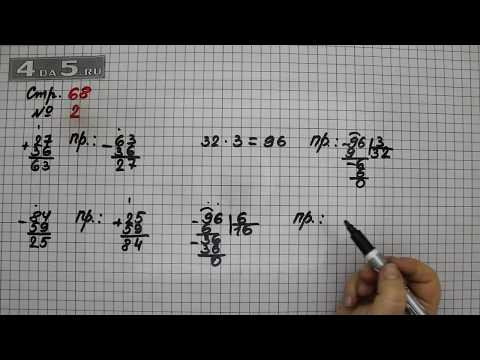 4DA5.RU
Стр. 68
№ 2
+ 27
36
63
пр.: - 63
36
27
32 · 3 = 96
пр.: - 96 | 3
9 32
- 6
6
0
- 84
59
25
пр.: + 25
59
84
- 96 | 6
6 16
- 36
36
0
пр.: